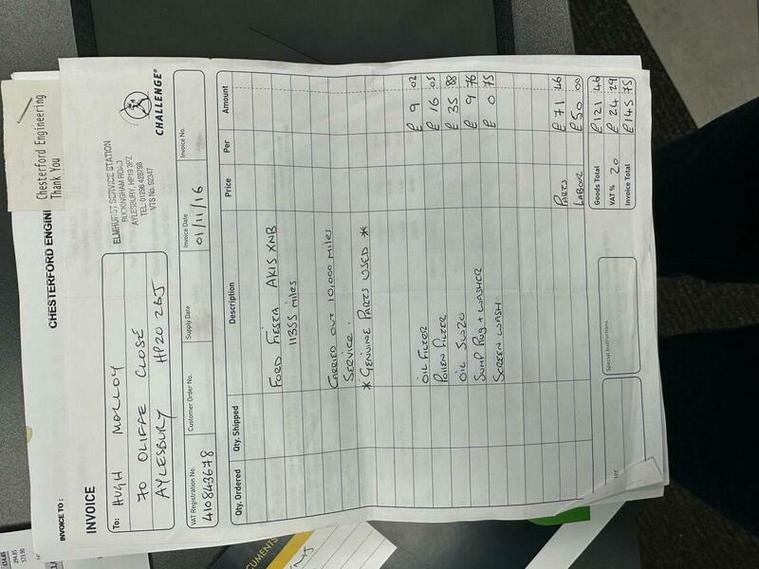 Chesterford Engineering
Thank You
CHESTERFORD ENGINE
INVOICE TO :
INVOICE
CHALLENGE®
ELMHURST SERVICE STATION
BUCKINGHAM ROAD
AYLESBURY, HP19 3PZ
VTS No. 92347
To: HUGH MOLLOY
70 OLIFFE CLOSE
AYLESBURY HP20 2BJ
VAT Registration No. Customer Order No. Supply Date Invoice Date Invoice No.
410843678 01/11/16
Qty. Ordered Qty. Shipped Description Price Per Amount
FORD FIESTA AK15 XNB
11355 MILES
CARRIED OUT 10,000 MILES
SERVICE.
* GENUINE PARTS USED *
OIL FILTER £ 9 02
POLLEN FILTER £ 16 05
OIL 5W20 £ 35 88
SUMP PLUG + WASHER £ 9 76
SCREEN WASH £ 0 75
PARTS £ 71 46
LABOUR £50 00
Goods Total £121 46
VAT % 20 £ 24 29
Invoice Total £145 75
Special Instructions